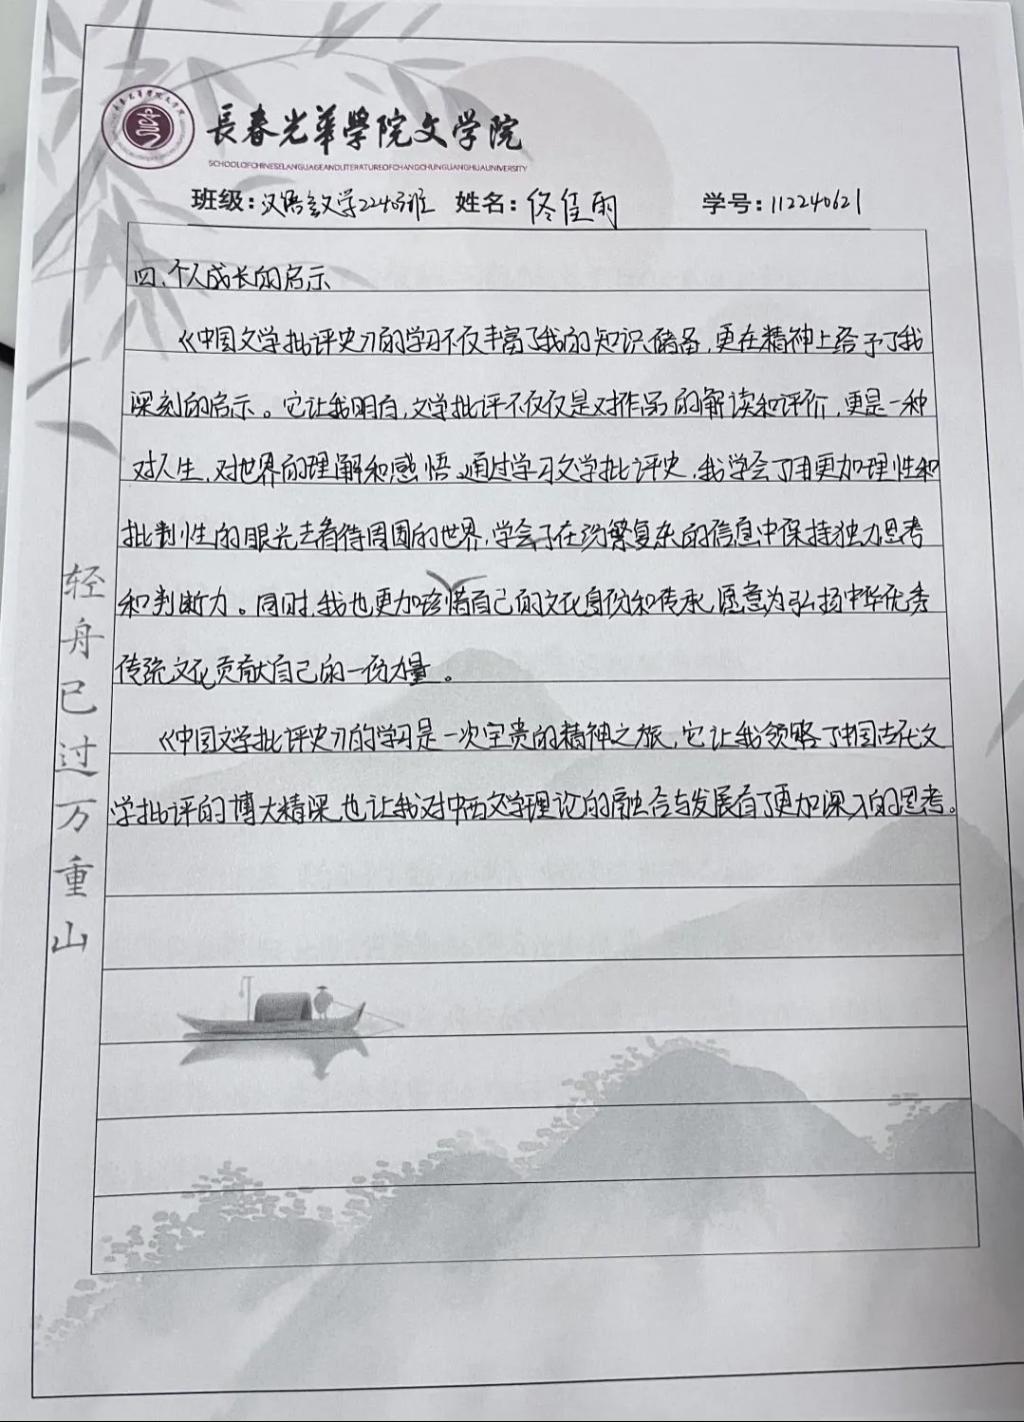 長春光華學院文学院
SCHOOLOFCHINESELANGUAGEANDLITERATUREOFCHANGCHUNGUANGHUAUNIVERSITY
班级:汉语言文学22403班 姓名:佟佳雨 学号:112240621
四、个人成长的启示
《中国文学批评史》的学习不仅丰富了我的知识储备,更在精神上给予了我
深刻的启示。它让我明白,文学批评不仅仅是对作品的解读和评价,更是一种
对人生,对世界的理解和感悟。通过学习文学批评史,我学会了用更加理性和
批判性的眼光去看待周围的世界,学会了在纷繁复杂的信息中保持独力思考
和判断力。同时,我也更加珍惜自己的文化身份和传承,愿意为弘扬中华优秀
传统文化贡献自己的一份力量。
《中国文学批评史》的学习是一次宝贵的精神之旅,它让我领略了中国古代文
学批评的博大精深,也让我对中西文学理论的融合与发展有了更加深入的思考。
轻舟已过万重山